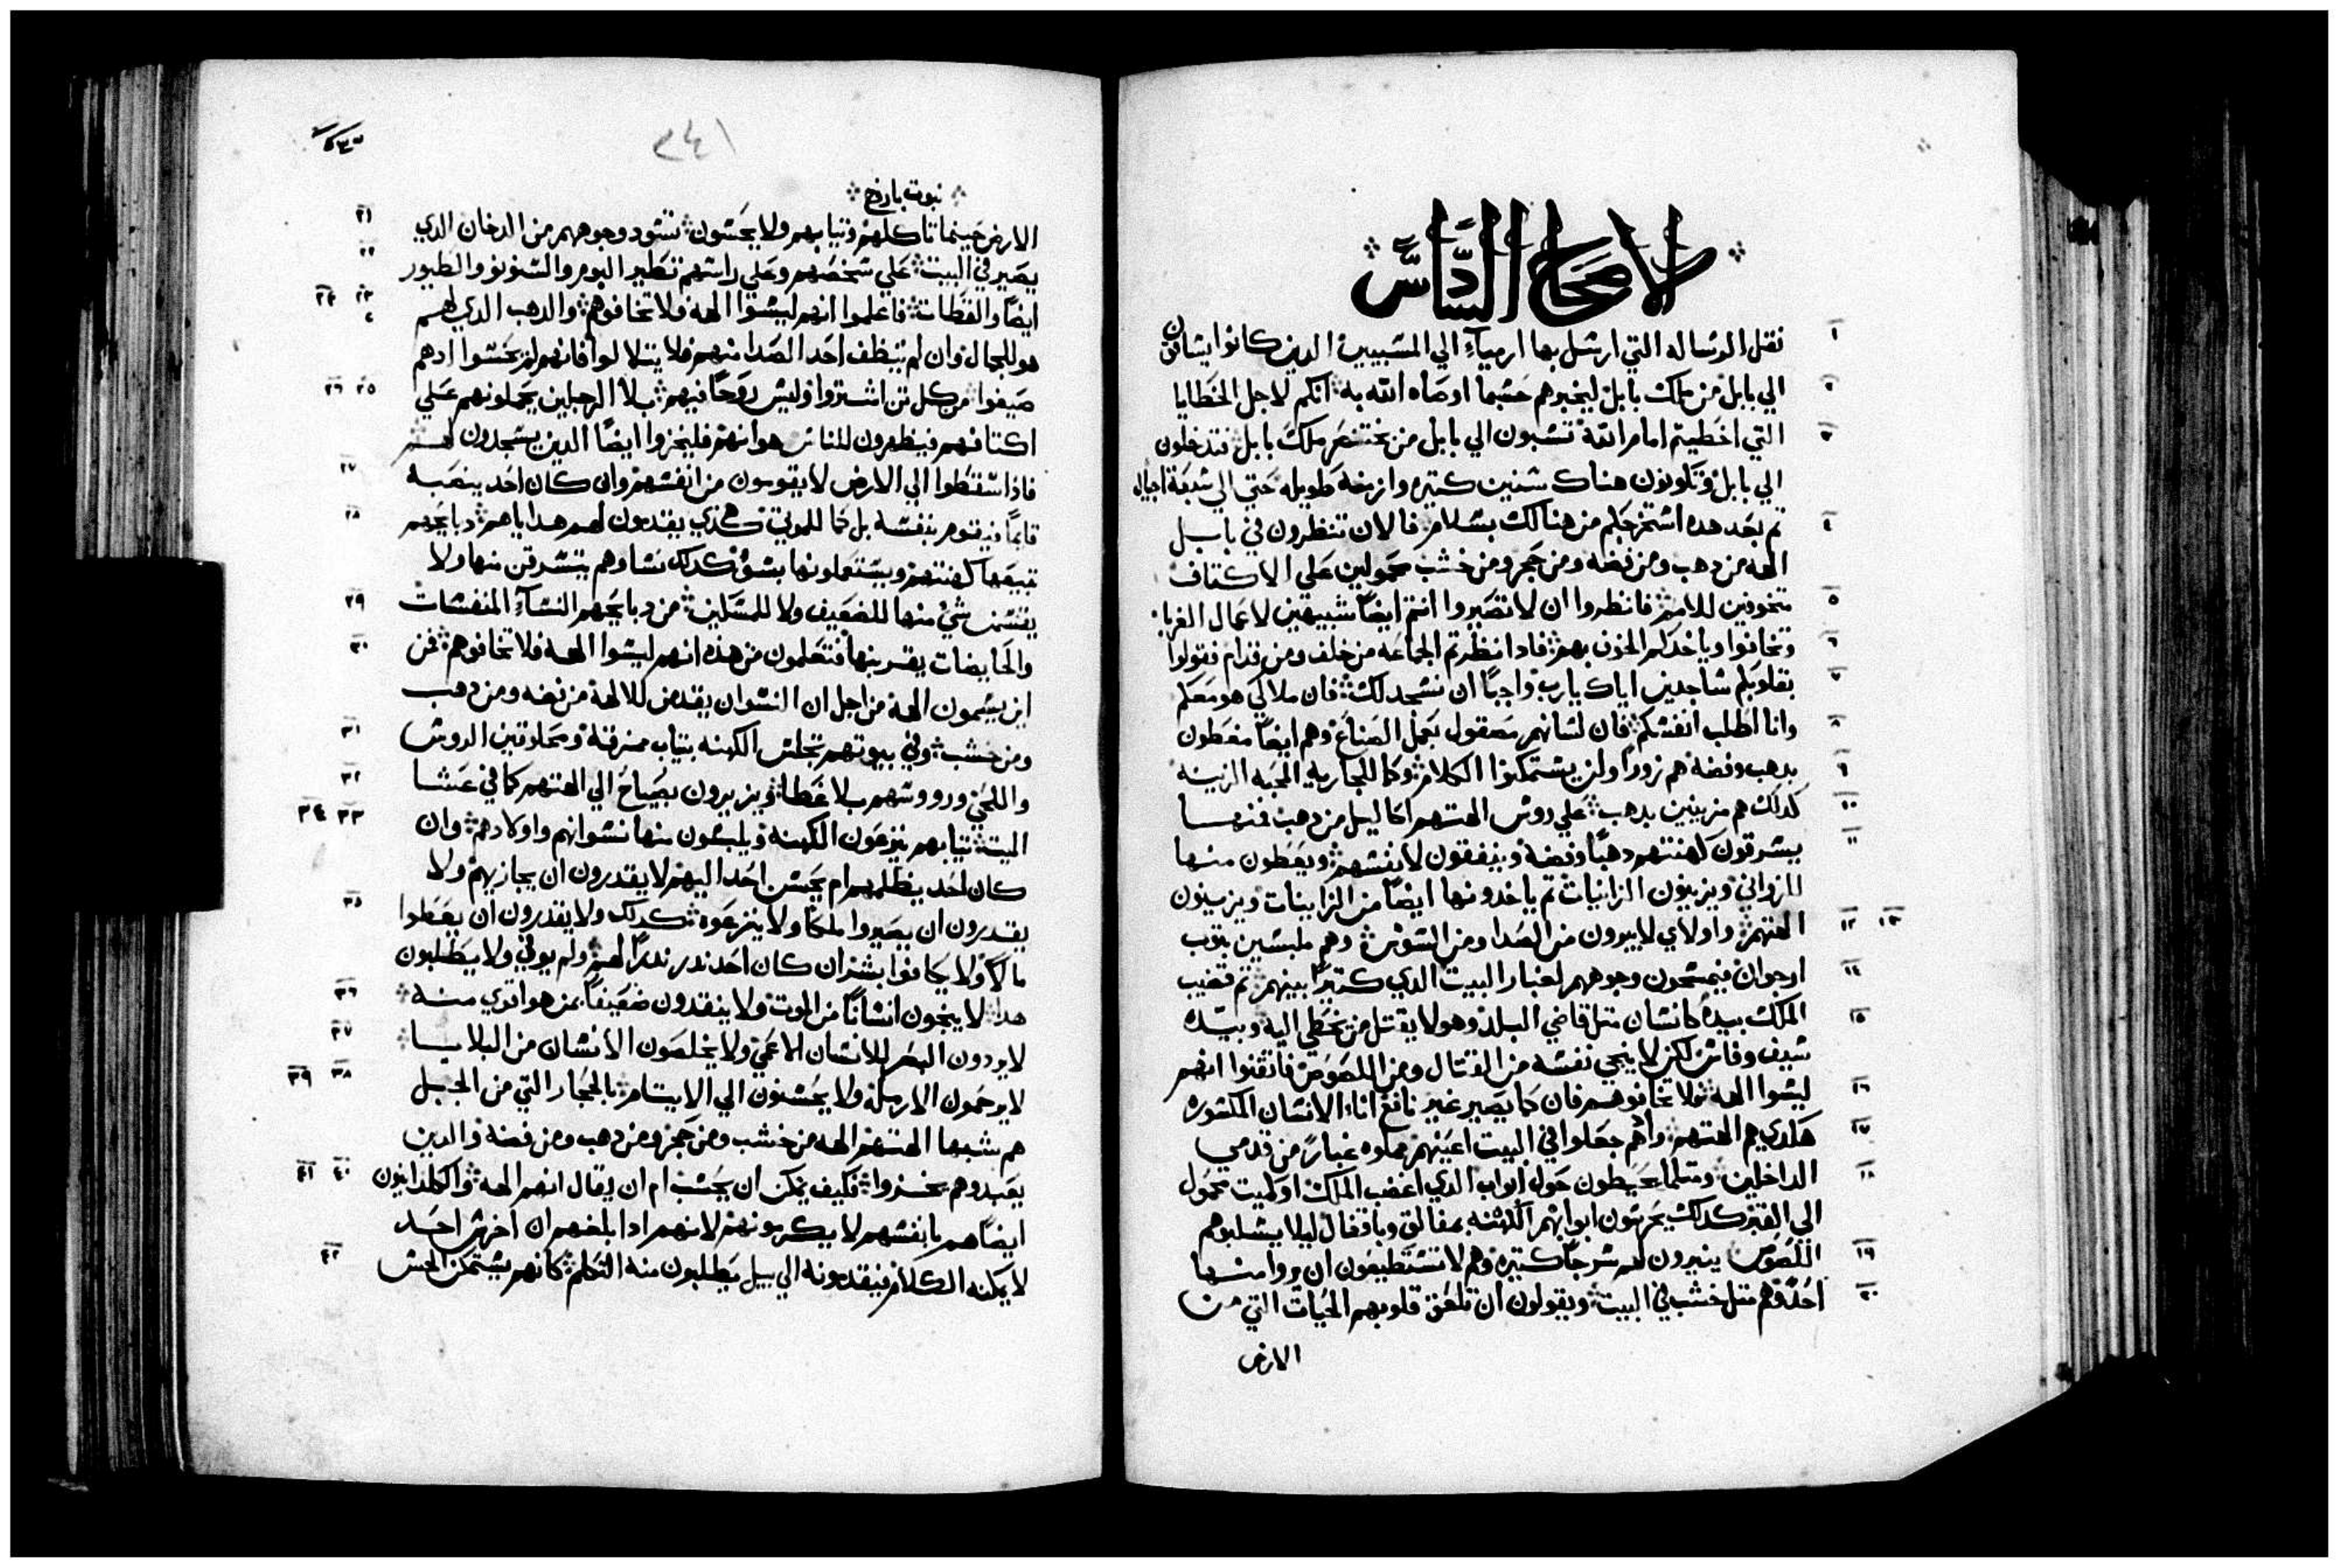 الاصحاح السادس
١ نقل الرساله التي ارسل بها ارمياء الي المسبيين الدين كانوا يساقون
٢ الي بابل من ملك بابل ليخبرهم حسبما اوصاه الله به انكم لاجل الخطايا
٣ التي اخطيتم امام الله تسبون الي بابل من بختنصر ملك بابل فتدخلون
الي بابل وتكونون هناك سنين كتيره وازمنة طويله حتي الي سبعة اجيال
٤ تم بعد هده استخرجكم من هنالك بسلام فالان تنظرون في بابل
الهه من دهب ومن فضه ومن حجر ومن خشب محمولين علي الاكتاف
٥ مخوفين للامم فانظروا ان لا تصيروا انتم ايضا شبيهين لاعمال الغربا
٦ وتخافوا وياخدكم الخوف بهم فادا نظرتم الجماعه من خلف ومن قدام فقولوا
٧ بقلوبكم ساجدين اياك يارب واجبا ان نسجد لك فان ملاكي هو معكم
٨ وانا اطلب انفسكم فان لسانهم مصقول بعمل الصناع وهم ايضا مغطون
٩ بدهب وفضه هم زورا ولن يستمكنوا الكلام وكما للجاريه المحبه الزينه
١٠ كدلك هم مزينين بدهب علي روس الهتهم اكاليل من دهب فمنها
١١ يسرقون كهنتهم دهبا وفضه وينفقون لانفسهم ويعطون منها
للزواني ويزينون الزانيات تم ياخدونها ايضا من الزانيات ويزينون
١٢ ١٣ الهتهم واولاي لا يبرون من الصدا ومن السوس وهم ملبسين بتوب
١٤ ارجوان فيمسحون وجوههم لغبار البيت الدي كتيرا بينهم تم قضيب
١٥ الملك بيده كانسان متل قاضي البلد وهو لا يقتل من يخطي اليه وبيده
سيف وفاس لكن لا ينجي نفسه من القتال ومن اللصوص فاتقنوا انهم
١٦ ليسوا الهه فلا تخافوهم فان كما يصير غير نافع اناء الانسان المكسوره
١٧ هكدي هم الهتهم واهم جعلوا في البيت اعينهم مملوه غبار من قدمي
١٨ الداخلين ومتلما يحيطون حول ابواب الدي اغضب الملك او كميت محمول
الي القبر كدلك يحرتون ابوابهم الكهنه بمغالق وباقفال ليلا يسلبوهم
١٩ اللصوص ينيرون لهم سرجا كتيره وهم لا تستطيعون ان يروا منها
٢٠ احد وهم متل خشب في البيت ويقولون ان تلعق قلوبهم الحيات التي من
الارض
٣٤١
نبوت باروخ
٢١ الارض حينما تاكلهم وتيابهم ولا يحسون تتسود وجوههم من الدخان الدي
٢٢ يصير في البيت علي شخصهم وعلي راسهم تطير البوم والسنونو والطيور
٢٣ ٢٤ ايضا والقطات فاعلموا انهم ليسوا الهه ولا تخافوهم والدهب الدي لهم
هو للجمال وان لم ينظف احد الصدا منهم فلا يتلالوا فانهم لم يحسوا ادهم
٢٥ ٢٦ صيغوا من كل تمن اشتروا وليس روحا فيهم بلا الرجلين يحملونهم علي
اكتافهم فيظهرون للناس هوانهم فليخزوا ايضا الدين يسجدون لهم
٢٧ فادا سقطوا الي الارض لا يقومون من انفسهم وان كان احد ينصبه
٢٨ قايما فيقوم بنفسه بل كما للموتي هكدي يقدمون لهم هداياهم دبايحهم
تبيعها كهنتهم ويستعملونها بسو كدلك نساوهم يتسرقن منها ولا
٢٩ يقسمن شي منها للضعيف ولا للمسكين من دبايحهم النساء المنفسات
٣٠ والحايضات يقربنها فتعلمون من هده انهم ليسوا الهه فلا تخافوهم فمن
اين يسمون الهة من اجل ان النسوان يقدمن للالهة من فضه ومن دهب
٣١ ومن خشب وفي بيوتهم تجلس الكهنه بتياب ممزقة ومحلوقين الروس
٣٢ واللحي ورووسهم بلا غطا ويزيرون بصياح الي الهتهم كما في عشا
٣٣ ٣٤ الميتة تيابهم ينزعون الكهنه ويلبسون منها نسوانهم واولادهم وان
كان احد يظلمهم ام يحسن احدا اليهم لا يقدرون ان يجازيهم ولا
٣٥ يقدرون ان يصيروا ملكا ولا ينزعوه كدلك ولا يقدرون ان يعطوا
مالا ولا يجافوا بشر ان كان احد ندر ندرا لهم ولم يوفي ولا يطلبون
٣٦ هدا لا ينجون انسانا من الموت ولا ينقدون ضعيفا ممن هو اقوي منه
٣٧ لا يردون البصر للانسان الاعمي ولا يخلصون الانسان من البلايا
٣٨ ٣٩ لا يرحمون الارملة ولا يحسنون الي الايتام بالحجار التي من الجبل
هم شبها الهتهم الهه من خشب ومن حجر ومن دهب ومن فضه والدين
٤٠ ٤١ يعبدوهم يخزوا فكيف يمكن ان يحسب ام ان يقال انهم الهه والكلدانيون
ايضا هم بانفسهم لا يكرمونهم لانهم ادا بلغهم ان اخرس احد
٤٢ لا يمكنه الكلام فيقدمونه الي بيل يطلبون منه التكلم كانهم يستمكن الحس